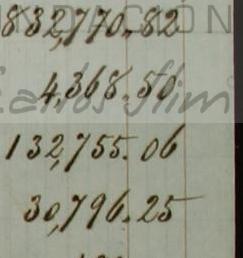 832,770.82
4,368.50
132,755.06
30,796.25